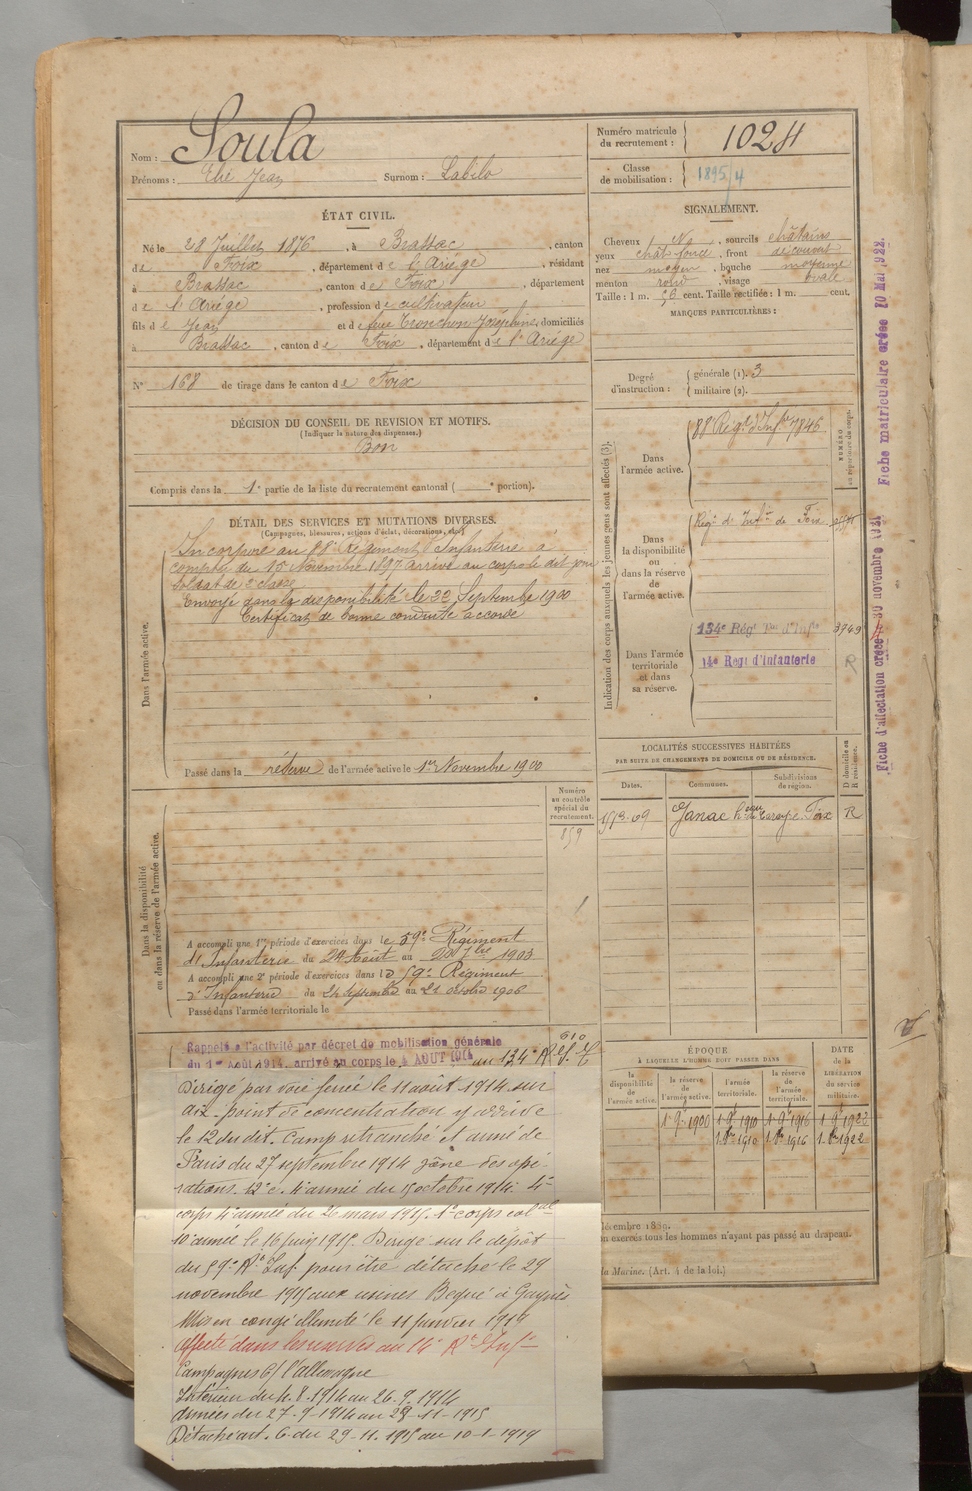 Nom : Soula
Prénoms : Elie Jean Surnom : Labilo
Numéro matricule du recrutement : 1024
Classe de mobilisation : 1895/4
ÉTAT CIVIL.
Né le 28 Juillet 1876, à Brassac, canton
de Foix, département de l'Ariége, résidant
à Brassac, canton de Foix, département
de l'Ariége, profession de cultivateur
fils de Jean et de feue Tronchon Joséphine, domiciliés
à Brassac, canton de Foix, département de l'Ariége
N° 168 de tirage dans le canton de Foix
SIGNALEMENT.
Cheveux, sourcils châtains
yeux chât foncé, front découvert
nez moyen, bouche moyenne
menton rond, visage ovale
Taille : 1 m. 56 cent. Taille rectifiée : 1 m. cent.
MARQUES PARTICULIÈRES :
Degré d'instruction : générale (1). 3
militaire (2).
DÉCISION DU CONSEIL DE REVISION ET MOTIFS.
(Indiquer la nature des dispenses.)
Bon
Compris dans la 1e partie de la liste du recrutement cantonal ( e portion).
DÉTAIL DES SERVICES ET MUTATIONS DIVERSES.
(Campagnes, blessures, actions d'éclat, décorations, etc.)
Dans l'armée active.
Incorporé au 88e Régiment Infanterie à
compter du 15 Novembre 1897 arrivé au corps le dit jour
Soldat de 2e classe
Envoyé dans la disponibilité le 22 Septembre 1900
Certificat de bonne conduite accordé
Passé dans la réserve de l'armée active le 1er Novembre 1900
Indication des corps auxquels les jeunes gens sont affectés (3).
NUMÉRO au répertoire du corps.
Dans l'armée active.
88 Régt d'Infie 7846
Dans la disponibilité ou dans la réserve de l'armée active.
Régt d'Infie de Foix
Dans l'armée territoriale et dans sa réserve.
134e Régt Ter d'Infie 3749
14e Régt d'Infanterie R
Fiche d'affectation créée 30 novembre 1921
Fiche matriculaire créée 10 Mai 1922.
LOCALITÉS SUCCESSIVES HABITÉES
PAR SUITE DE CHANGEMENTS DE DOMICILE OU DE RÉSIDENCE.
Dates. Communes. Subdivisions de région. D domicile ou R résidence.
Ganac Foix R
Dans la disponibilité ou dans la réserve de l'armée active.
Numéro au contrôle spécial du recrutement.
859
A accompli une 1re période d'exercices dans le 59e Régiment
d'Infanterie du 24 Août au 20 7bre 1903
A accompli une 2e période d'exercices dans le 59e Régiment
d'Infanterie du 24 Septembre au 21 octobre 1906
Passé dans l'armée territoriale le
Rappelé à l'activité par décret de mobilisation générale
du 1er Août 1914, arrivé au corps le 4 AOUT 1914 au 134e
Dirigé par voie ferrée le 11 août 1914 sur
aix point de concentration y arrivé
le 12 du dit. Camp retranché et armée de
Paris du 27 septembre 1914 zône des opé-
rations. 12e c. 4e armée du 15 octobre 1914. 4e
corps 4e armée du 26 mars 1915. 1er corps colal
10e armée le 16 juin 1915. Dirigé sur le dépôt
du 59e Rt Inf. pour être détaché le 29
novembre 1915 aux usines
Mis en congé illimité le 11 janvier 1919
affecté dans les réserves au 14e Rt d'Infie
Campagnes C/ l'allemagne
Intérieur du 4.8.1914 au 26.9.1914
Armées du 27-9-1914 au 28-11-1915
Détaché art. 6 du 29-11.1915 au 10-1-1919
ÉPOQUE
À LAQUELLE L'HOMME DOIT PASSER DANS
la disponibilité de l'armée active. la réserve de l'armée active. l'armée territoriale. la réserve de l'armée territoriale.
DATE de la LIBÉRATION du service militaire.
1er 9bre 1900 1er 9bre 1910 1er 9bre 1916 1er 9bre 1922
1. 8bre 1910 1. 8bre 1916 1. 8bre 1922
décembre 1889.
on exercés tous les hommes n'ayant pas passé au drapeau.
la Marine. (Art. 4 de la loi.)